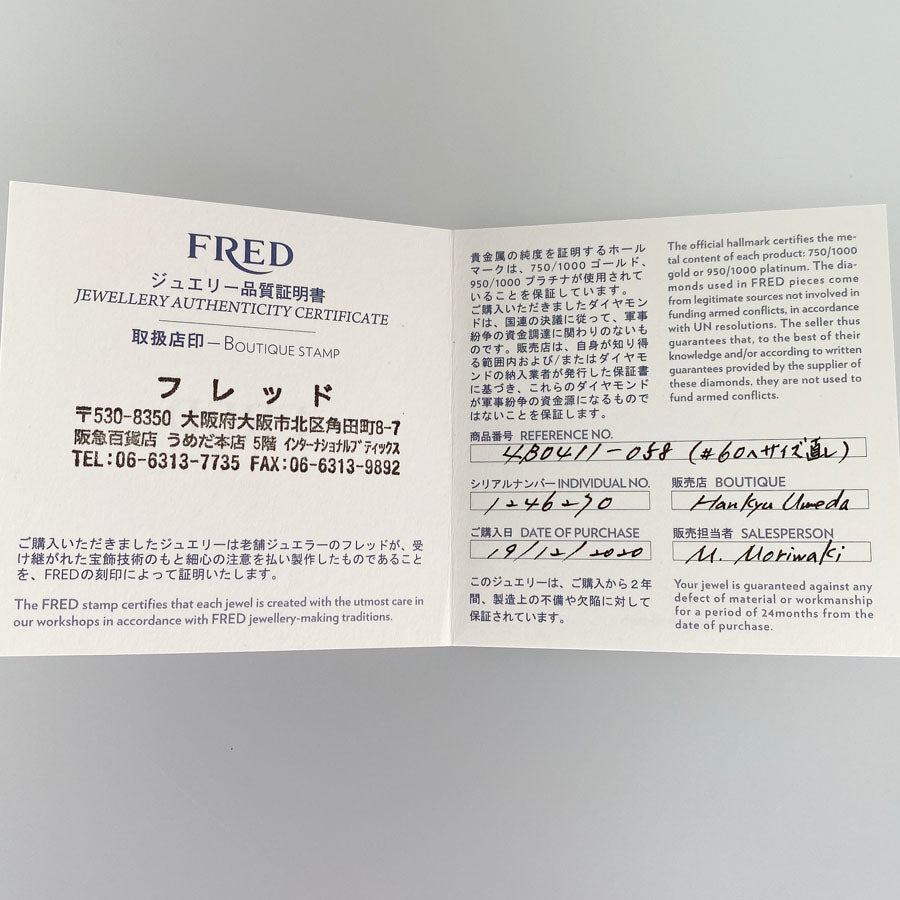 FRED
ジュエリー品質証明書
JEWELLERY AUTHENTICITY CERTIFICATE
取扱店印 — BOUTIQUE STAMP
フレッド
〒530-8350 大阪府大阪市北区角田町8-7
阪急百貨店 うめだ本店 5階 インターナショナルブティックス
TEL:06-6313-7735 FAX:06-6313-9892
ご購入いただきましたジュエリーは老舗ジュエラーのフレッドが、受
け継がれた宝飾技術のもと細心の注意を払い製作したものであること
を、FREDの刻印によって証明いたします。
The FRED stamp certifies that each jewel is created with the utmost care in
our workshops in accordance with FRED jewellery-making traditions.
貴金属の純度を証明するホール
マークは、750/1000 ゴールド、
950/1000 プラチナが使用されて
いることを保証しています。
ご購入いただきましたダイヤモン
ドは、国連の決議に従って、軍事
紛争の資金調達に関わりのないも
のです。販売店は、自身が知り得
る範囲内および/またはダイヤモ
ンドの納入業者が発行した保証書
に基づき、これらのダイヤモンド
が軍事紛争の資金源になるもので
はないことを保証します。
The official hallmark certifies the me-
tal content of each product: 750/1000
gold or 950/1000 platinum. The dia-
monds used in FRED pieces come
from legitimate sources not involved in
funding armed conflicts, in accordance
with UN resolutions. The seller thus
guarantees that, to the best of their
knowledge and/or according to written
guarantees provided by the supplier of
these diamonds, they are not used to
fund armed conflicts.
商品番号 REFERENCE NO.
4B0411-058 (#60へサイズ直し)
シリアルナンバー INDIVIDUAL NO.
1246270
販売店 BOUTIQUE
Hankyu Umeda
ご購入日 DATE OF PURCHASE
19/12/2020
販売担当者 SALESPERSON
M. Moriwaki
このジュエリーは、ご購入から2年
間、製造上の不備や欠陥に対して
保証されています。
Your jewel is guaranteed against any
defect of material or workmanship
for a period of 24months from the
date of purchase.